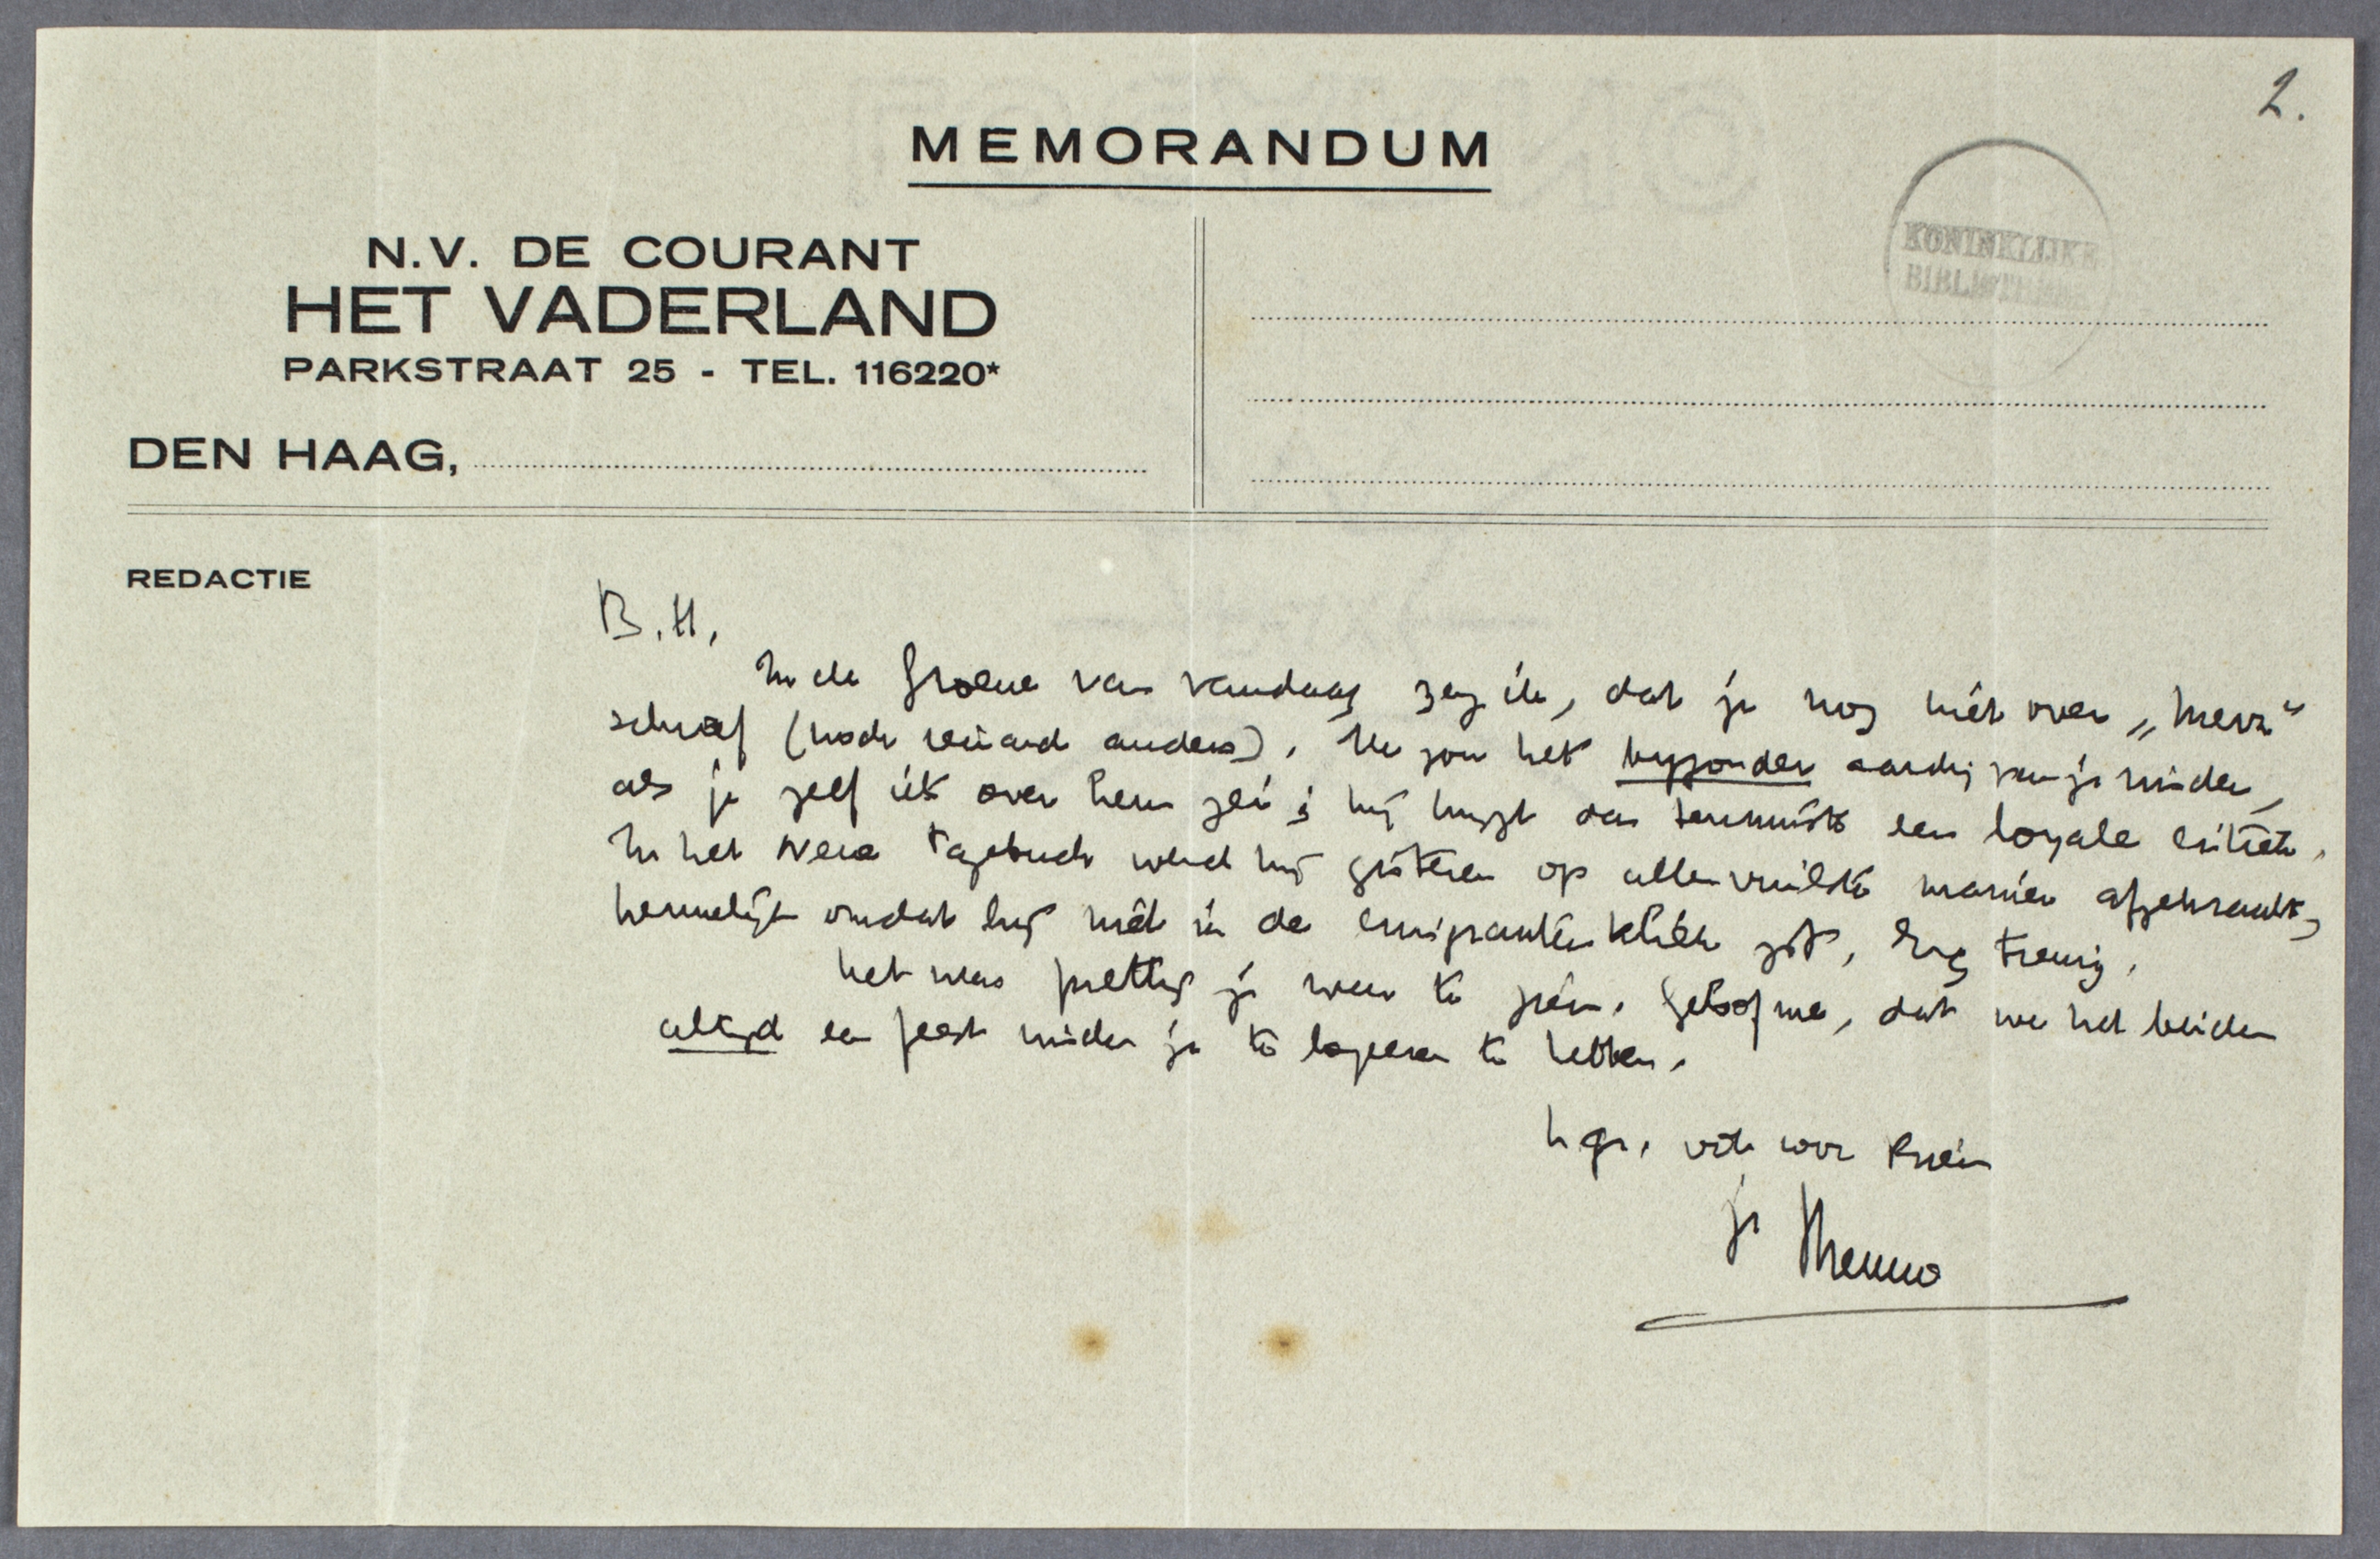 2.
MEMORANDUM
N.V. DE COURANT
HET VADERLAND
PARKSTRAAT 25 - TEL. 116220*
KONINKLIJKE
BIBLIOTHEEK
DEN HAAG,
REDACTIE
B.H,
In de Groene van vandaag zag ik, dat je nog niet over „
schreef (noch iemand anders). Ik zou het byzonder aardig van je vinden,
als je zelf iets over hem zei; hij krijgt dan tenminste een loyale critiek.
In het Neue Tagebuch werd hij gisteren op allervuilste manier afgekraakt,
kennelijk omdat hij niet in de emigrantenkliek zit. Erg treurig.
Het was prettig je weer te zien. Geloof me, dat we het beiden
altijd een feest vinden je te logeren te hebben.
h gr. ook voor
je Menno